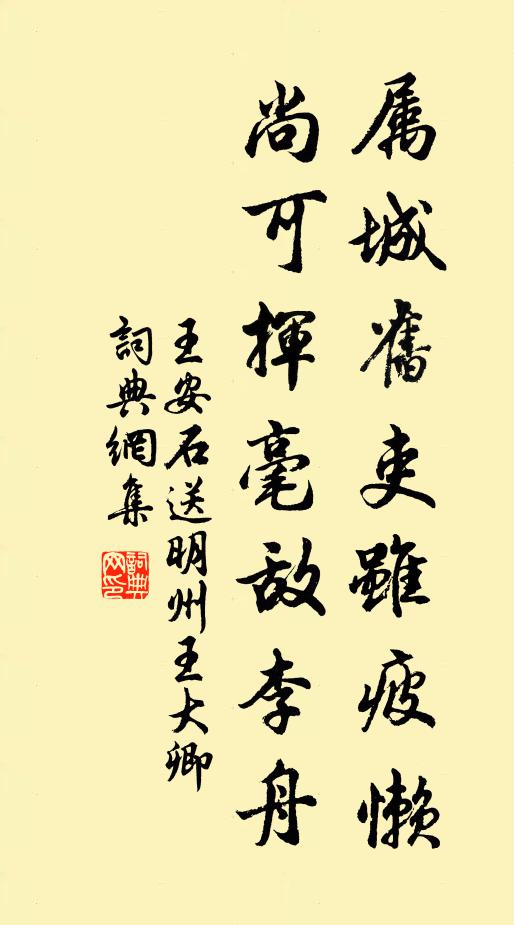 属城舊吏雖疲懶
尚可揮毫敵李舟
王安石送明州王大卿
詞典網集
詞典网印